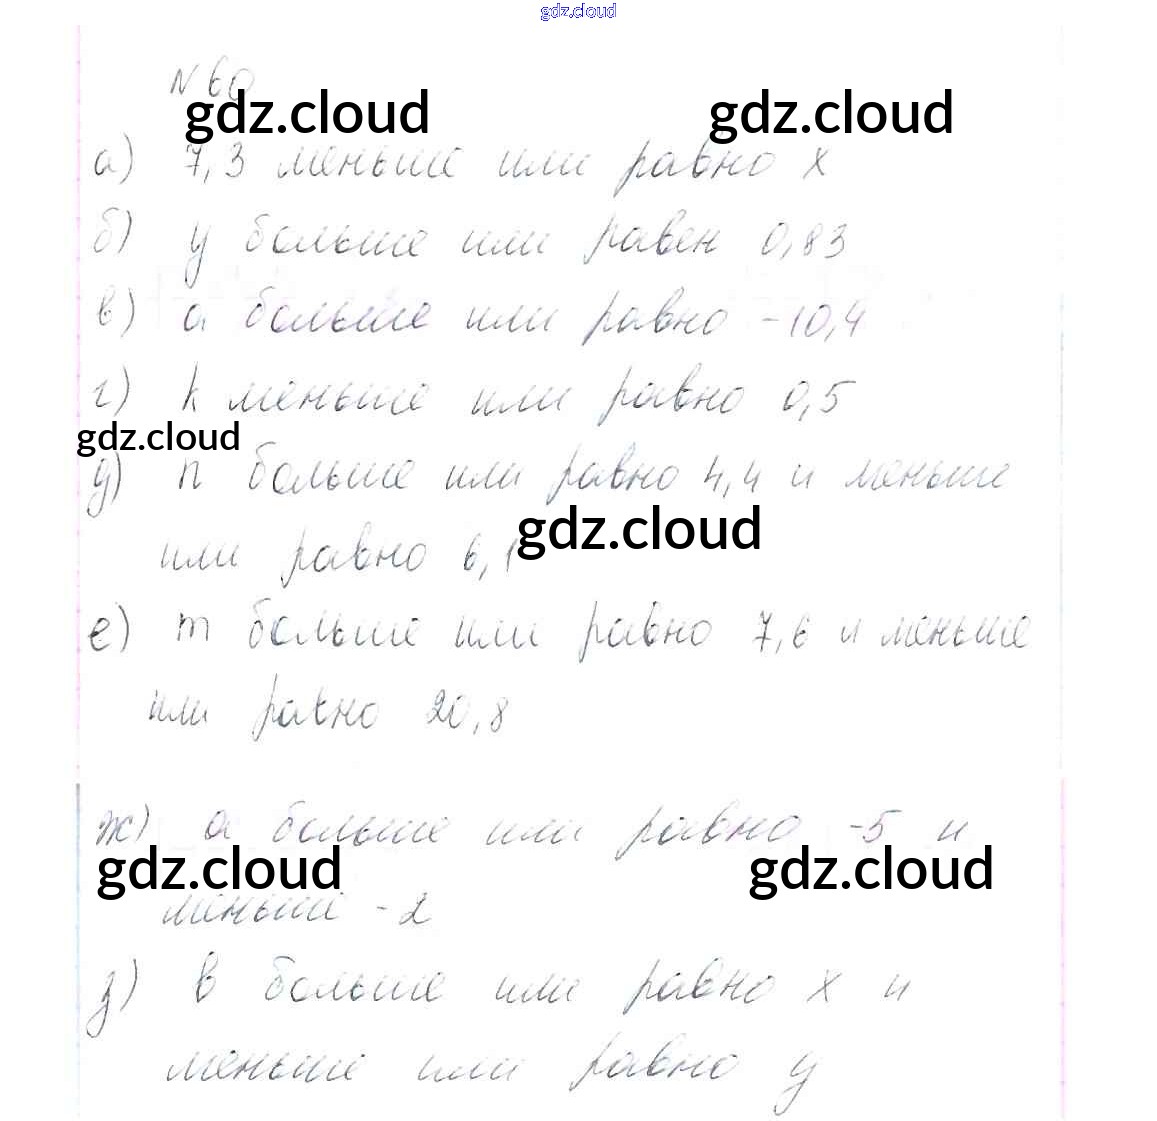 gdz.cloud
N 60
gdz.cloud gdz.cloud
а) 7,3 меньше или равно x
б) y больше или равен 0,83
в) a больше или равно -10,4
г) k меньше или равно 0,5
gdz.cloud
д) n больше или равно 4,4 и меньше
gdz.cloud
или равно 6,1
е) m больше или равно 7,6 и меньше
или равно 20,8
ж) a больше или равно -5 и
gdz.cloud gdz.cloud
меньше -2
з) в больше или равно x и
меньше или равно y